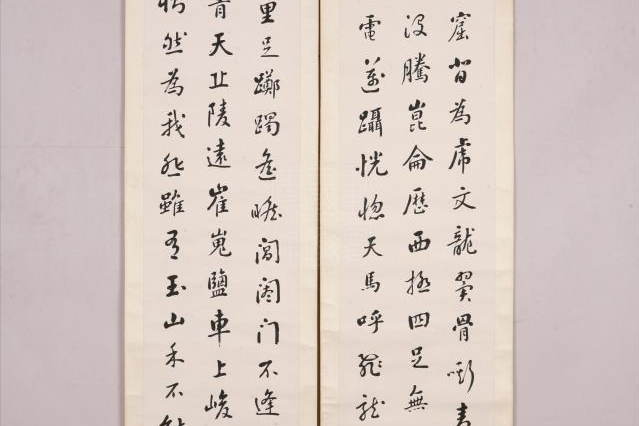 窟背為虎文龍翼骨嘶青
沒騰崑侖歷西極四足無
電邁躡恍惚天馬呼飛龍
里足躑躅遙瞻閶闔门不逢
青天丘陵遠崔嵬鹽車上峻
惻然為我悲雖有玉山禾不能